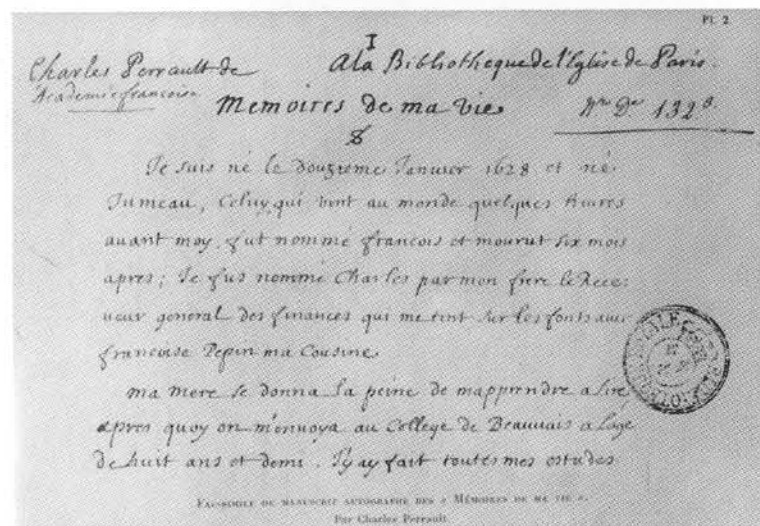 Pl. 2
I
Charles Perrault de Ala Bibliotheque de l'Eglise de Paris.
Academie françoise
Memoires de ma vie 132
Je suis né le douzieme Janvier 1628 et né
Jumeau, Celuy qui vint au monde quelques heures
auant moy, fut nommé françois et mourut six mois
apres; Je fus nommé Charles par mon frere le Rece-
ueur general des finances qui me tint sur les fonts auec
françoise Pepin ma Cousine
ma mere se donna la peine de mapprendre a lire,
apres quoy on m'enuoya au College de Beauuais a l'age
de huit ans et demi. J'y ay fait toutes mes estudes
FAC-SIMILE DU MANUSCRIT AUTOGRAPHE DES « MÉMOIRES DE MA VIE ».
Par Charles Perrault